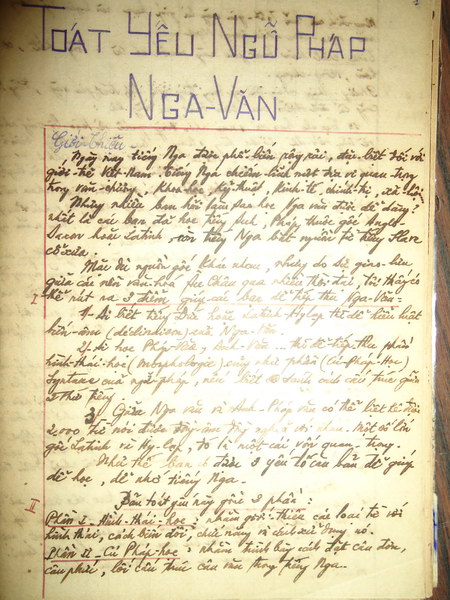 TOÁT YẾU NGỮ PHÁP
NGA-VĂN
Giới-thiệu -
Ngày nay tiếng Nga được phổ-biến rộng rãi, đặc-biệt đối với
giới-trẻ Việt-Nam. Tiếng Nga chiếm-lĩnh một địa vị quan trọng
trong văn-chương, khoa-học, kỹ-thuật, kinh-tế, chính-trị, xã-hội.
Nhưng nhiều bạn hỏi làm sao học Nga văn được dễ dàng?
nhất là các bạn đã học tiếng Anh, Pháp thuộc gốc Anglo
Saxon hoặc Latinh, còn tiếng Nga bắt nguồn từ tiếng Slave
cổ xưa.
Mặc dù nguồn gốc khác nhau, nhưng do sự giao-lưu
giữa các nền văn-hóa Âu Châu qua nhiều thời đại, tôi thấy có
I thể rút ra 3 điểm giúp các bạn dễ tiếp thu Nga-Văn -
1/- Ai biết tiếng Latinh, Hy-lạp thì dễ hiểu luật
biến-âm (declinaison) của Nga-Văn.
2/- Ai học Pháp-Văn, Anh-Văn ... thì dễ tiếp thu phần
hình-thái-học (morphologie) cũng như phần (Cú-Pháp-Học)
Syntaxe của ngữ-pháp, nên biết so sánh cách cấu trúc giữa
thứ tiếng.
3/ Giữa Nga văn và Anh-Pháp văn có thể biết từ
2.000 từ nói được đồng-âm hay nghĩa với nhau. Một số lời
gốc Latinh và Hy-lạp, đó là một cái vốn quan-trọng.
Như thế bạn có được 3 yếu tố căn bản để giúp
dễ học, dễ nhớ tiếng Nga.
II Bản toát yếu này gồm 3 phần:
Phần I - Hình-thái-học: nhằm giới-thiệu các loại từ với
hình thái, cách biến đổi, chức năng và cách sử dụng nó.
Phần II - Cú Pháp-học: nhằm trình bày cách đặt câu đơn,
câu phức, lối cấu trúc câu văn trong tiếng Nga.